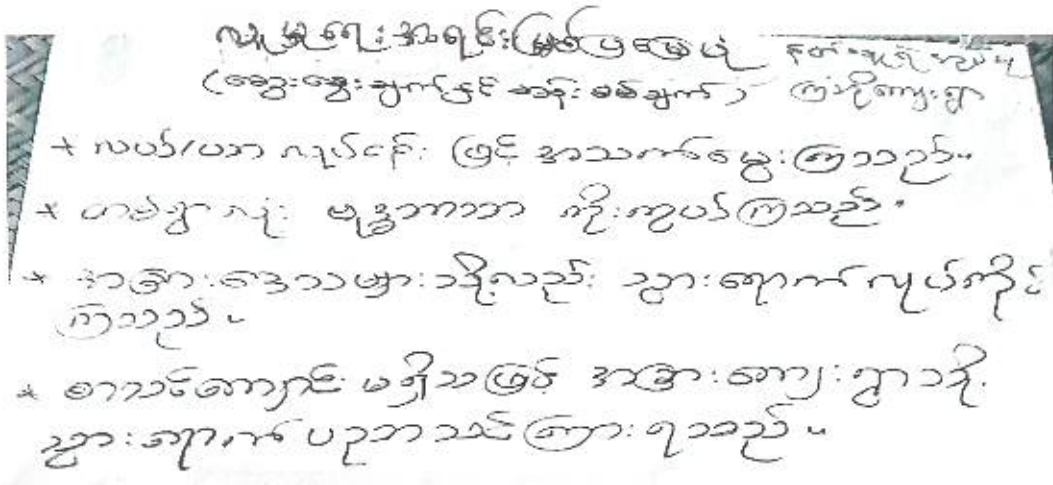 လူမှုရေးအရင်းမြစ်ပြမြေပုံ
(ဆွေးနွေးချက်နှင့် ဆန်းစစ်ချက်) ကြံခိုကျေးရွာ
* လယ်/ယာ လုပ်ငန်း ဖြင့် အသက်မွေးကြသည်။
* တစ်ရွာလုံး ဗုဒ္ဓဘာသာ ကိုးကွယ်ကြသည်။
* အခြားဒေသများသို့လည်း သွားရောက်လုပ်ကိုင်
ကြသည်။
* စာသင်ကျောင်း မရှိသဖြင့် အခြားကျေးရွာသို့
သွားရောက်ပညာသင်ကြားရသည်။